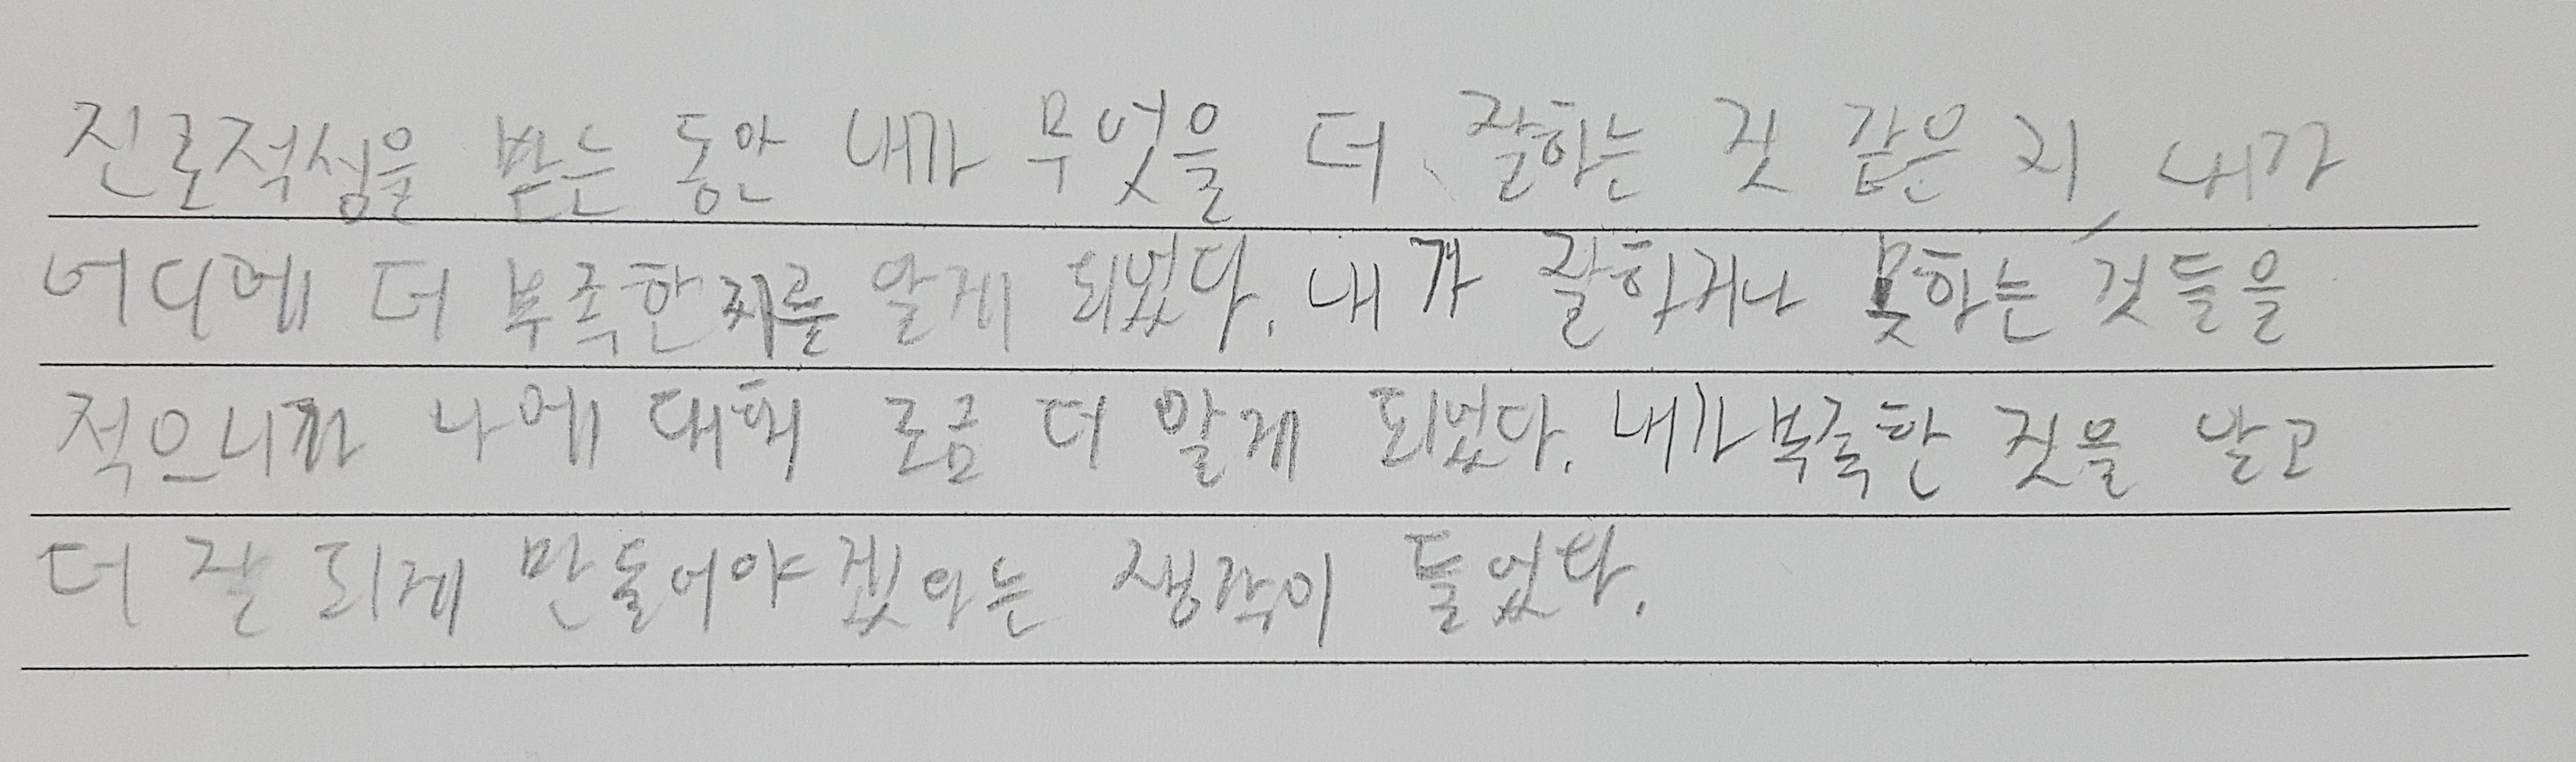 진로적심을 받는 동안 내가 무엇을 더 잘하는 것 같은 지, 내가
어디에 더 부족한지를 알게 되었다. 내가 잘하거나 못하는 것들을
적으니까 나에 대해 조금 더 알게 되었다. 내가 부족한 것을 알고
더 잘 되게 만들어야겠다는 생각이 들었다.